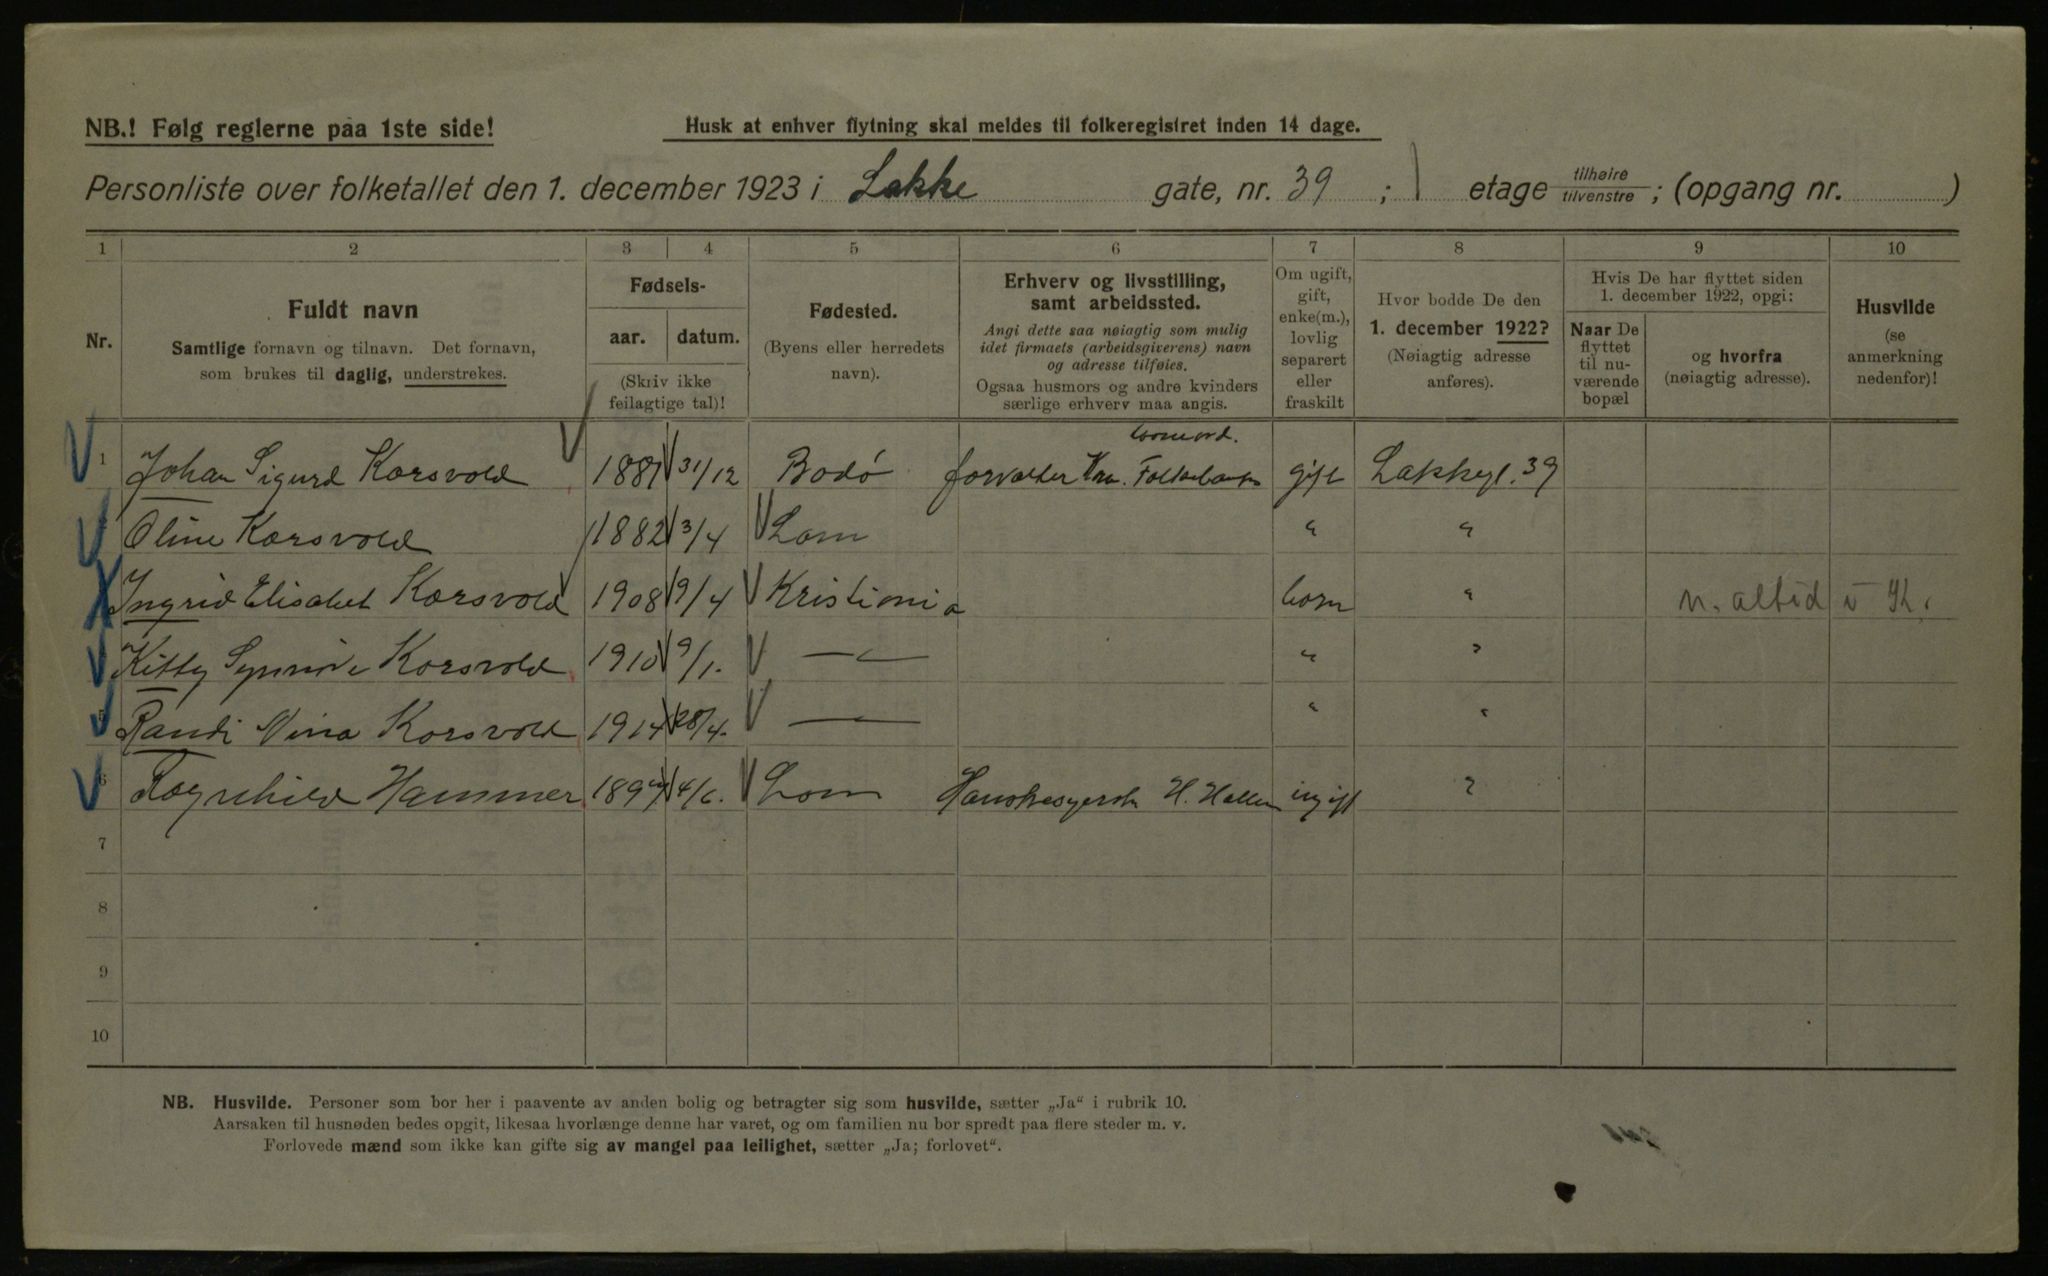 NB.! Følg reglerne paa 1ste side!
Husk at enhver flytning skal meldes til folkeregistret inden 14 dage.
Personliste over folketallet den 1. december 1923 i Lakke gate, nr. 39 ; 1 etage tilhøire tilvenstre ; (opgang nr. )
1 2 3 4 5 6 7 8 9 10
Nr.
Fuldt navn
Samtlige fornavn og tilnavn. Det fornavn,
som brukes til daglig, understrekes.
Fødsels-
aar. datum.
(Skriv ikke
feilagtige tal)!
Fødested.
(Byens eller herredets
navn).
Erhverv og livsstilling,
samt arbeidssted.
Angi dette saa nøiagtig som mulig
idet firmaets (arbeidsgiverens) navn
og adresse tilføies.
Ogsaa husmors og andre kvinders
særlige erhverv maa angis.
Om ugift,
gift,
enke(m.),
lovlig
separert
eller
fraskilt
Hvor bodde De den
1. december 1922?
(Nøiagtig adresse
anføres).
Hvis De har flyttet siden
1. december 1922, opgi:
Naar De
flyttet
til nu-
værende
bopæl
og hvorfra
(nøiagtig adresse).
Husvilde
(se
anmerkning
nedenfor)!
1 Johan Sigurd Korsvold 1881 31/12 Bodó forvalter Kra. Folkebank gift Lakkegt. 39
Oline Korsvold 1882 3/4 Lom " "
Ingrid Elisabet Korsvold 1908 9/4 Kristiania barn " n. altid i Kr.
Kitty Synnøve Korsvold 1910 9/1. — " "
5 Randi Nina Korsvold 1914 28/4. — " "
6 Ragnhild Hammer 4/6. Lom H. ugift "
7
8
9
10
NB. Husvilde. Personer som bor her i paavente av anden bolig og betragter sig som husvilde, sætter „Ja“ i rubrik 10.
Aarsaken til husnøden bedes opgit, likesaa hvorlænge denne har varet, og om familien nu bor spredt paa flere steder m. v.
Forlovede mænd som ikke kan gifte sig av mangel paa leilighet, sætter „Ja; forlovet“.